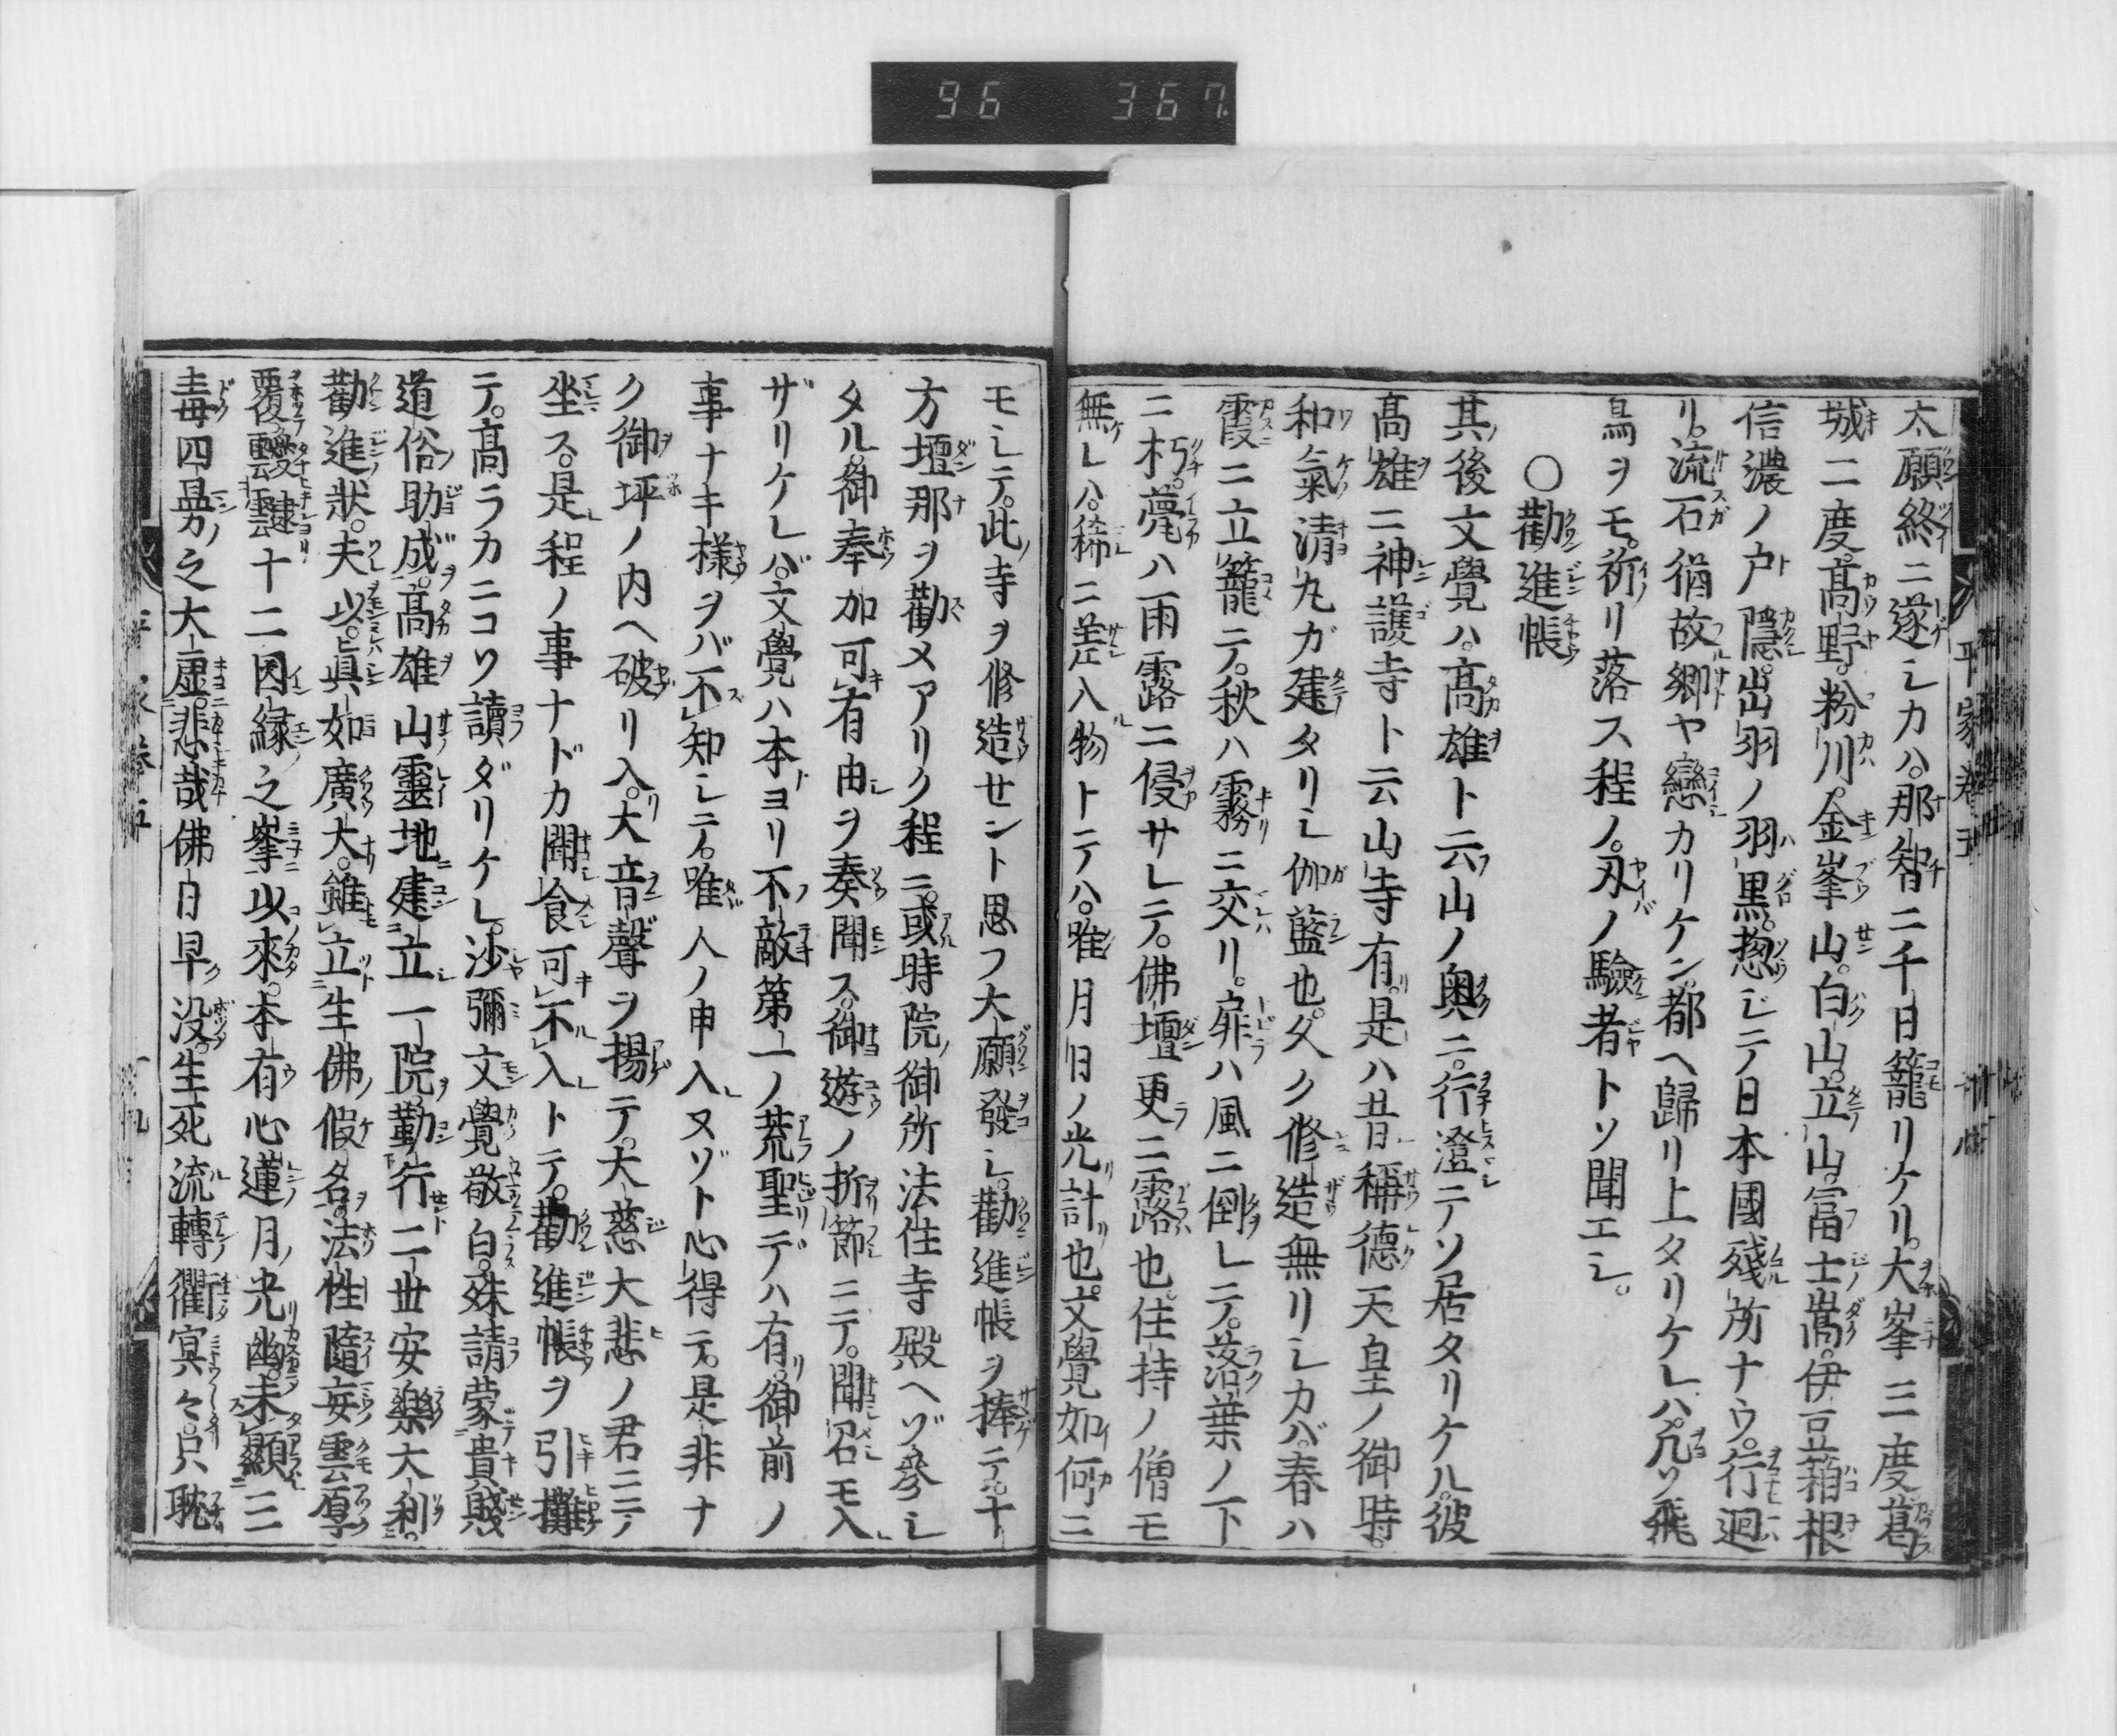 96 367
太願終ニ遂シカハ。那智ニ千日籠リケリ。大峯三度葛
城二度。高野。粉川。金峯山。白山。立山。冨士嵩。伊豆箱根
信濃ノ戸隱。出羽ノ羽黒。惣ジテ日本國殘所ナウ。行迴
リ。流石猶故郷ヤ戀カリケン。都ヘ歸リ上タリケレハ。凡ソ飛
鳥ヲモ。祈リ落ス程ノ。刃ノ驗者トソ聞エシ。
〇勸進帳
其後文覺ハ。高雄ト云山ノ奥ニ。行澄テソ居タリケル。彼
高雄ニ神護寺ト云山寺有。是ハ昔稱德天皇ノ御時。
和氣清丸ガ建タリシ伽藍也。久ク修造無リシカバ。春ハ
霞ニ立籠テ。秋ハ霧ニ交リ。扉ハ風ニ倒レテ。落葉ノ下
ニ朽。甍ハ雨露ニ侵サレテ。佛壇更ニ露也。住持ノ僧モ
無レハ。稀ニ差入物トテハ。唯月日ノ光計也。文覺如何ニ
モシテ。此寺ヲ修造セント思フ大願發シ。勸進帳ヲ捧テ。十
方壇那ヲ勸メアリク程ニ。或時院御所法住寺殿ヘゾ參シ
タル。御奉加可有由ヲ奏聞ス。御遊ノ折節ニテ。聞召モ入
ザリケレバ。文覺ハ本ヨリ不敵第一ノ荒聖デハ有。御前ノ
事ナキ樣ヲバ不知シテ。唯人ノ申入ヌゾト心得テ。是非ナ
ク御坪ノ内ヘ破リ入。大音聲ヲ揚テ。大慈大悲ノ君ニテ
坐ス。是程ノ事ナドカ聞食可不入トテ。勸進帳ヲ引攤
テ。高ラカニコソ讀ダリケレ。沙彌文覺敬白。殊請蒙貴賎
道俗助成。高雄山靈地建立一院。勤行二世安樂大利。
勸進狀。夫以。眞如廣大。雖立生佛假名。法性隨妄雲厚
覆靉靆十二因縁之峯以來。本有心蓮月光幽。未顯三
毒四曼之大虚。悲哉佛日早没。生死流轉衢冥々。只耽
平家巻五